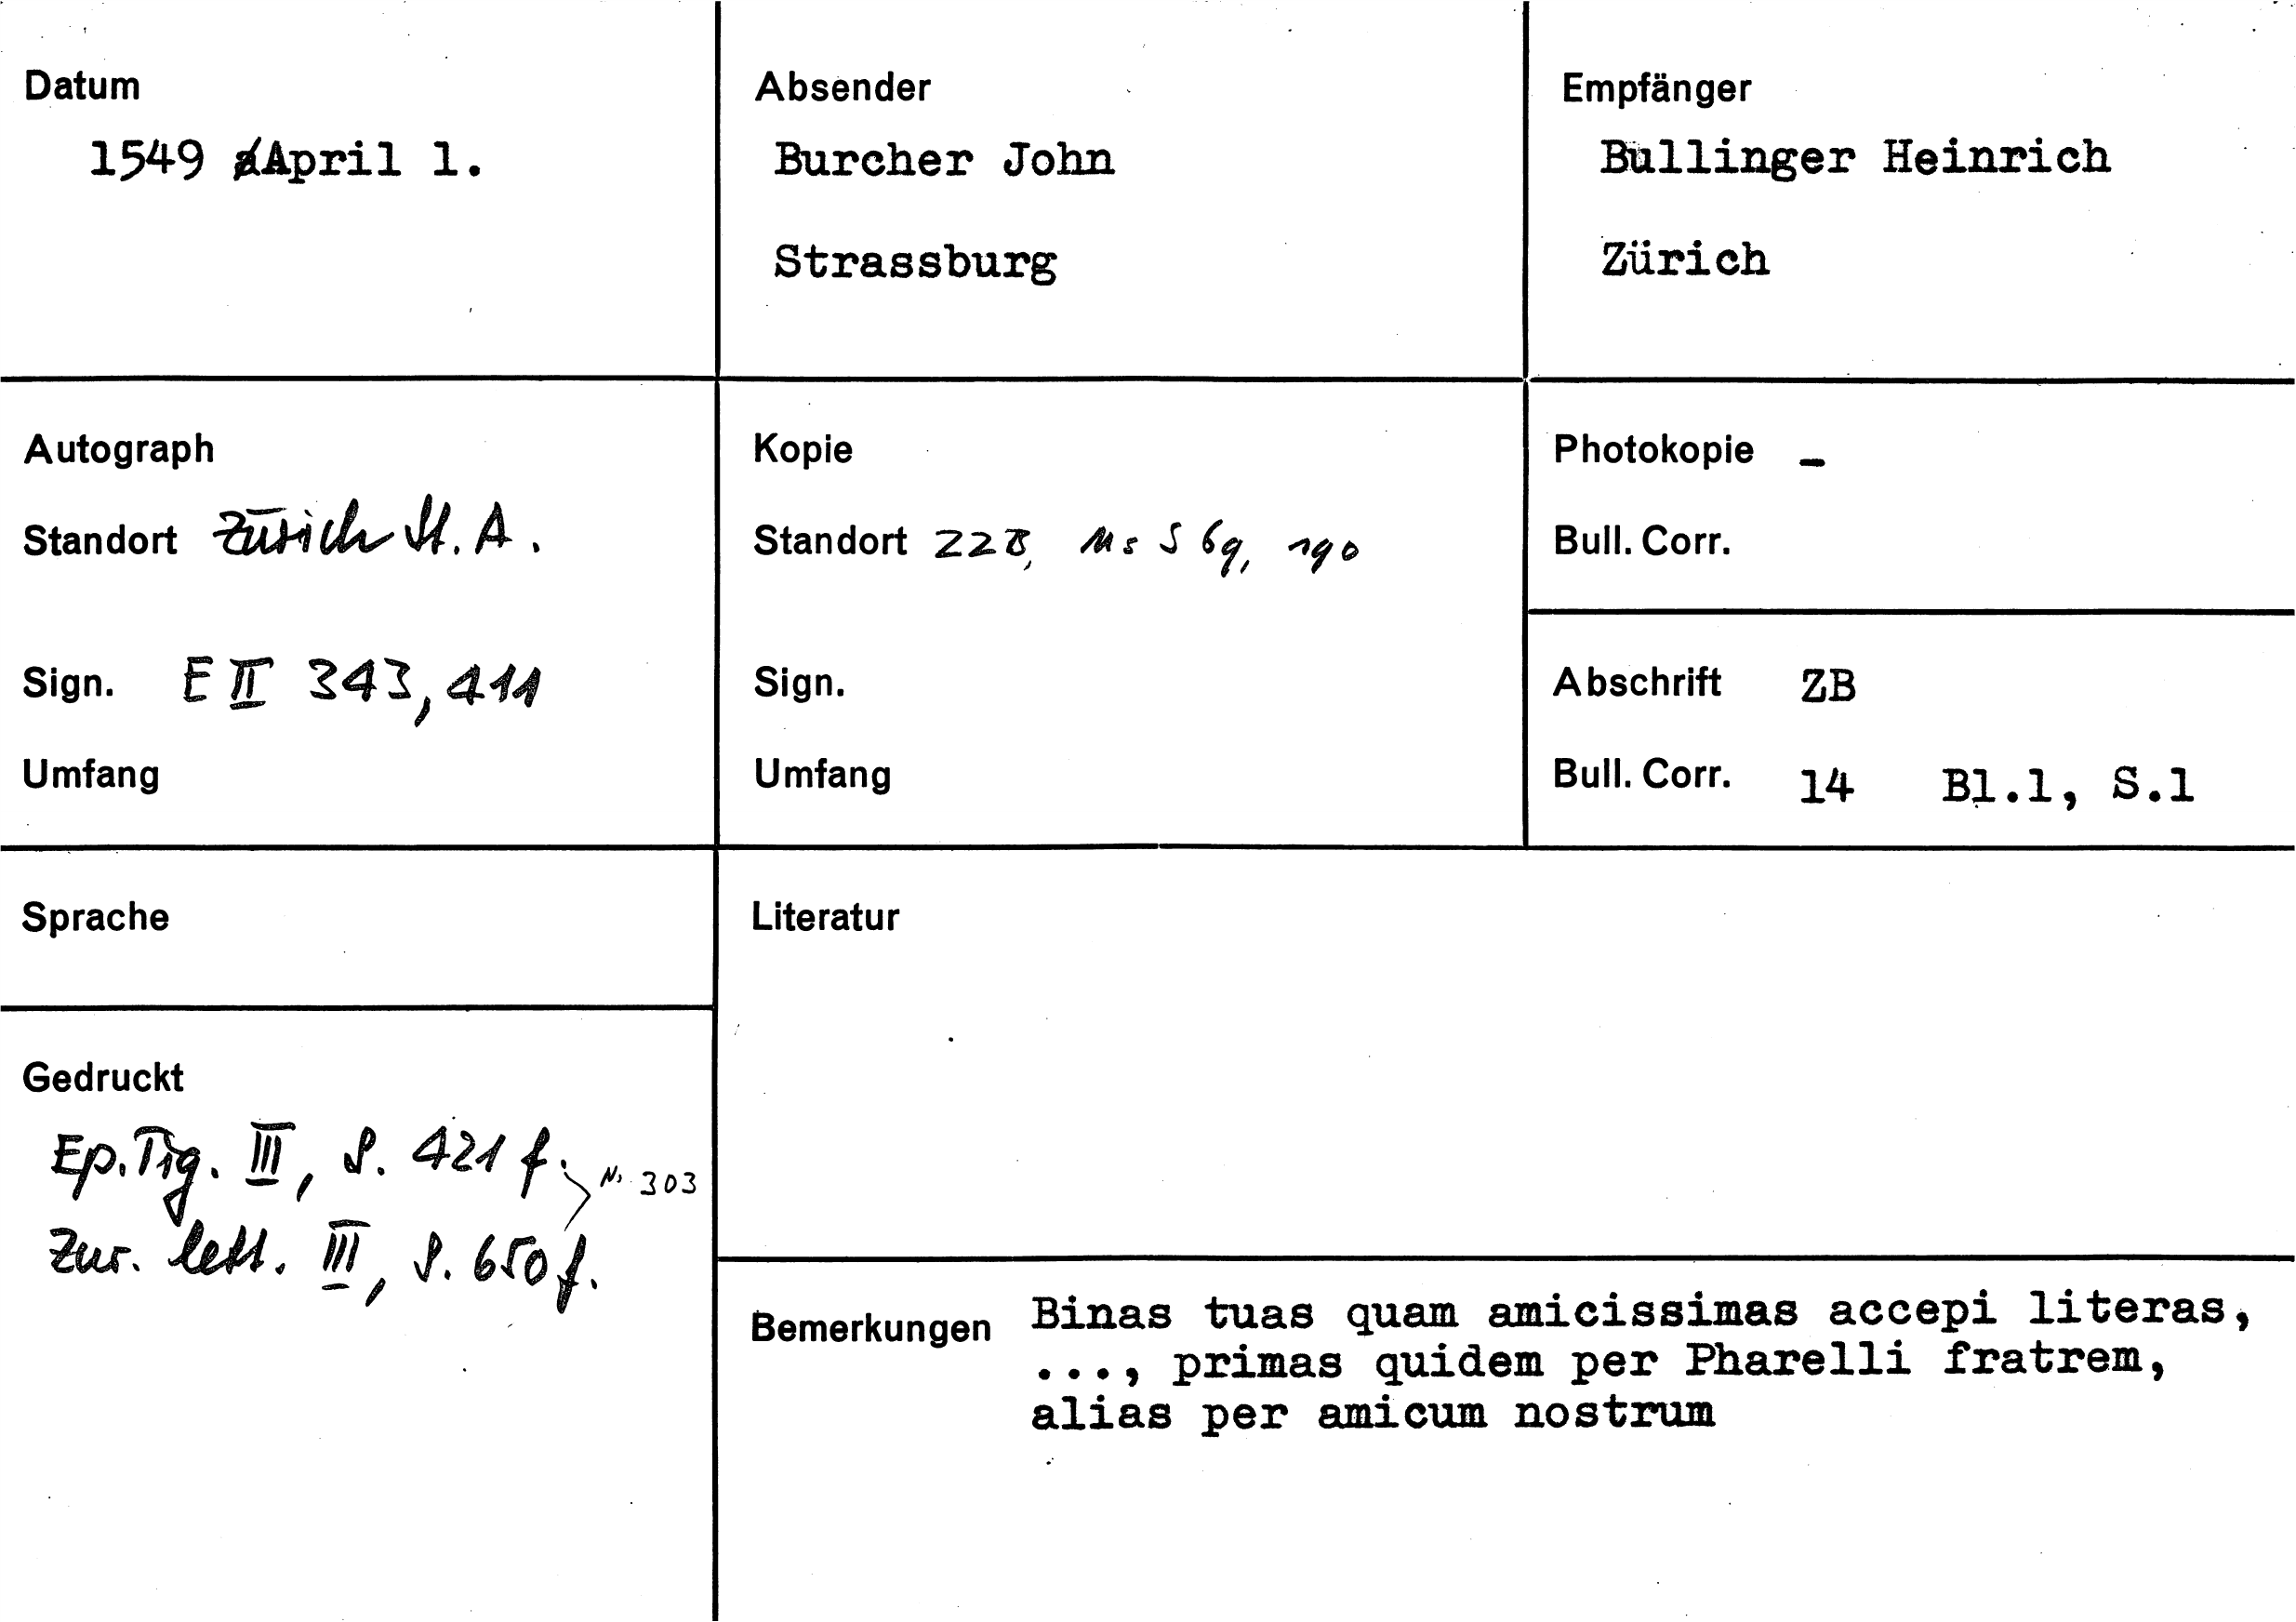 Datum
1549 April 1.
Absender
Burcher John
Strassburg
Empfänger
Bullinger Heinrich
Zürich
Autograph
Standort Zürich St. A.
Sign. E II 343, 411
Umfang
Kopie
Standort ZZB, Ms S 69, 190
Sign.
Umfang
Photokopie -
Bull. Corr.
Abschrift ZB
Bull. Corr. 14 Bl.1, S.1
Sprache
Literatur
Gedruckt
Ep. Tig. III, S. 421 f.
Nr. 303
Zur. lett. III, S. 650 f.
Bemerkungen Binas tuas quam amicissimas accepi literas,
..., primas quidem per Pharelli fratrem,
alias per amicum nostrum